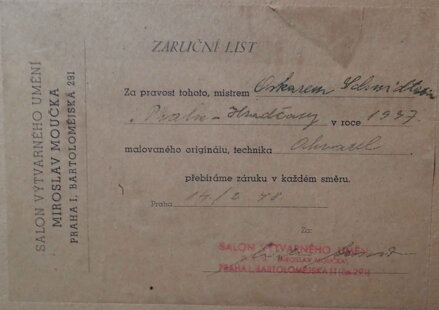 SALON VÝTVARNÉHO UMĚNÍ
MIROSLAV MOUČKA
PRAHA I, BARTOLOMĚJSKÁ 291
ZARUČNÍ LIST
Za pravost tohoto, mistrem Oskarem
"Praha - Hradčany v roce 1937
malovaného originálu, technika Akvarel
přebíráme záruku v každém směru.
Praha 14./2 48
Za:
SALON VÝTVARNÉHO UMĚNÍ
MIROSLAV MOUČKA
PRAHA I, BARTOLOMĚJSKÁ 11